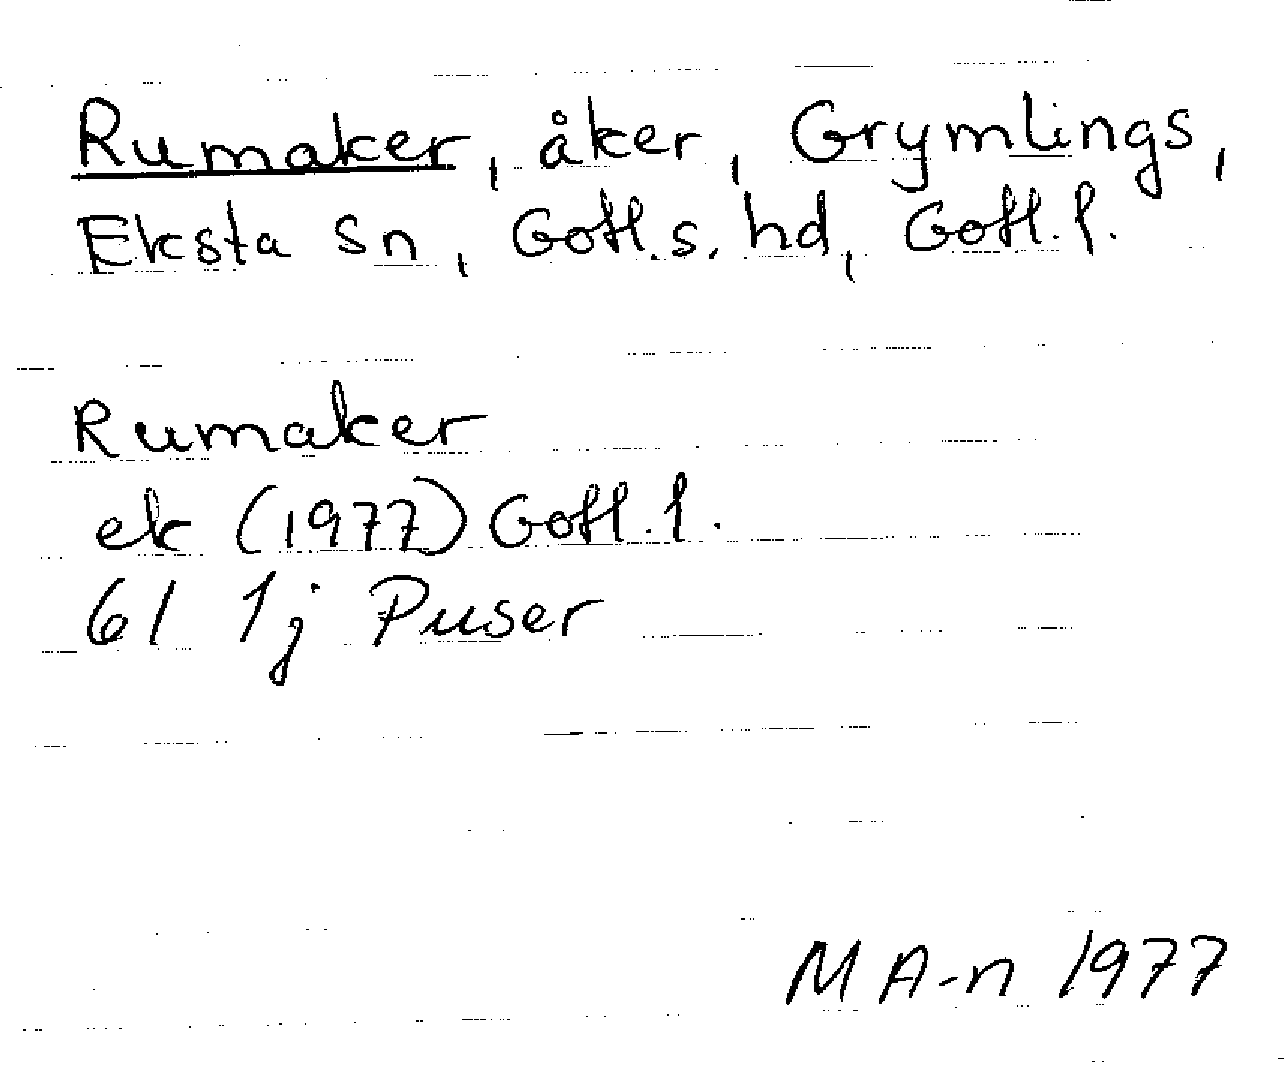 Rumaker, åker, Grymlings,
Eksta sn, Gotl.s. hd, Gotl. l.
Rumaker
ek (1977) Gotl. l.
6I 1j Puser
M A-n 1977